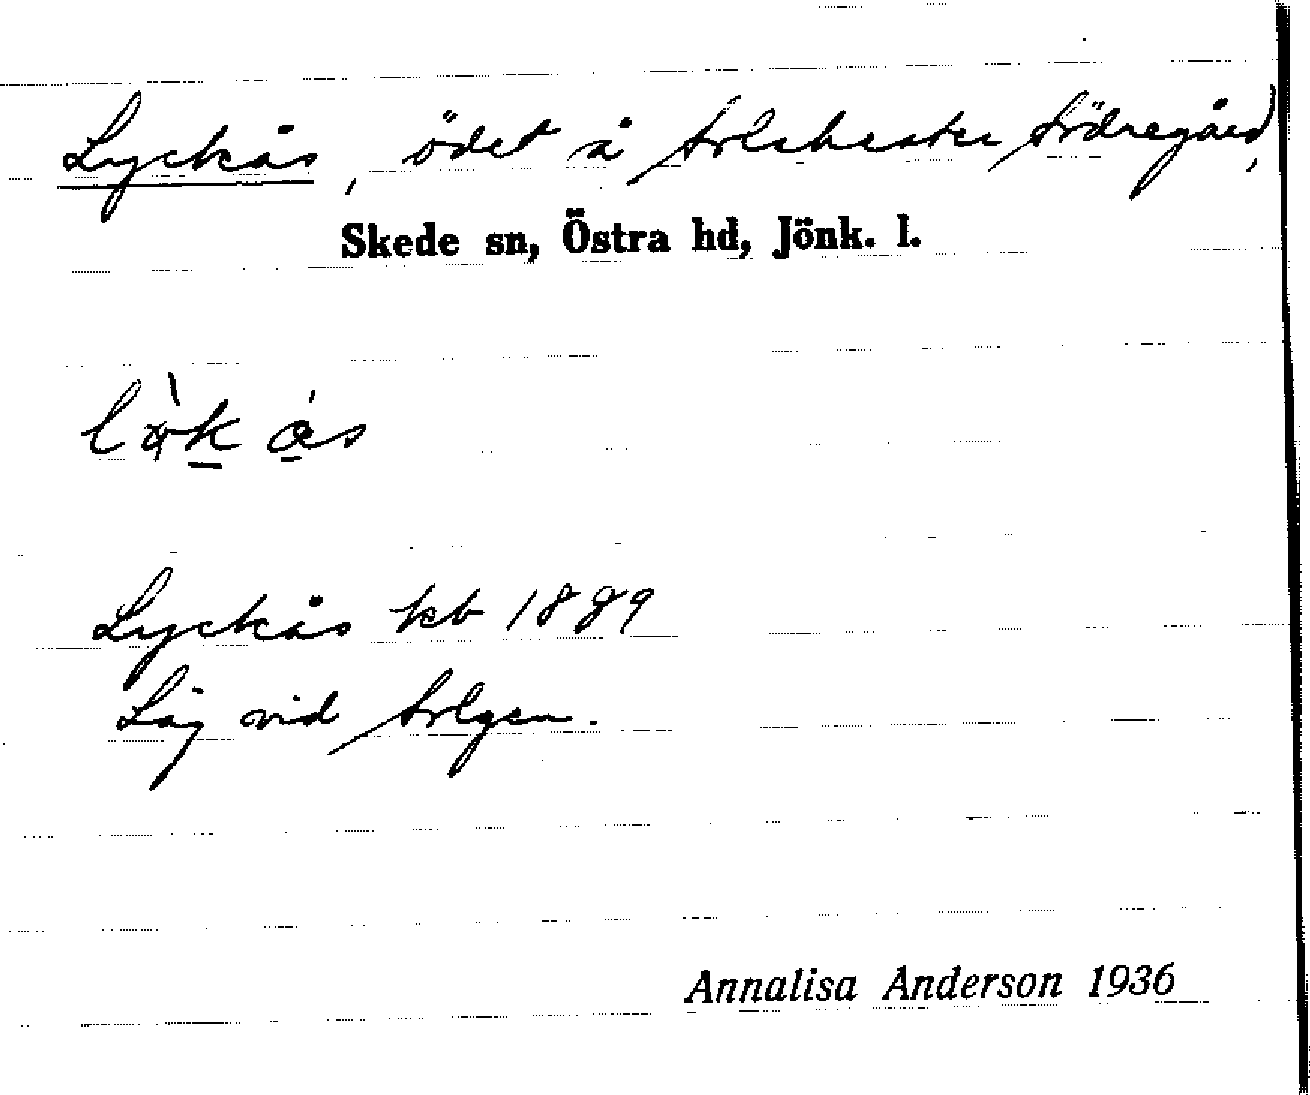 Lyckås, ödet å Södregård,
Skede sn, Östra hd, Jönk. l.
Lyckås kb 1889
Låg vid Solgen.
Annalisa Anderson 1936